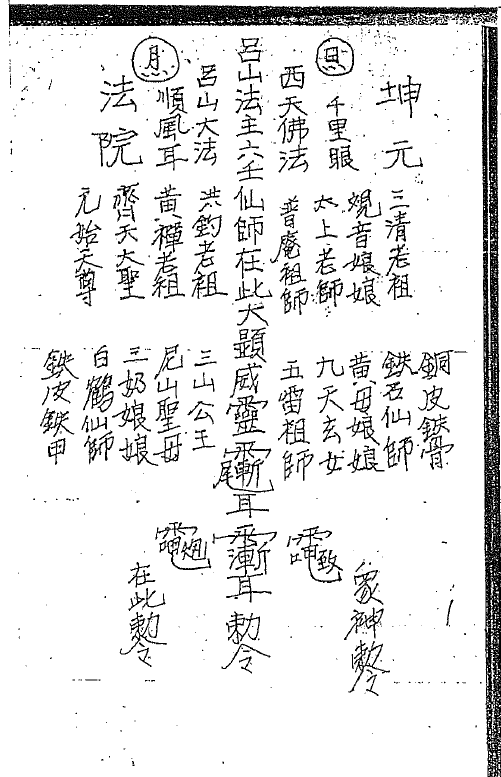 日
月
坤元
法院
千里眼
順風耳
西天佛法
呂山大法
呂山法主六壬仙師在此大顕威靈
耳
耳勅令
三清老祖
觀音娘娘
太上老師
普庵祖師
洪鈞老祖
黃禪老祖
齊天大聖
元始天尊
銅皮鉄骨
鉄石仙師
黃母娘娘
九天玄女
五雷祖師
三山公王
尼山聖母
三奶娘娘
白鶴仙師
鉄皮鉄甲
眾神勅令
在此勅令